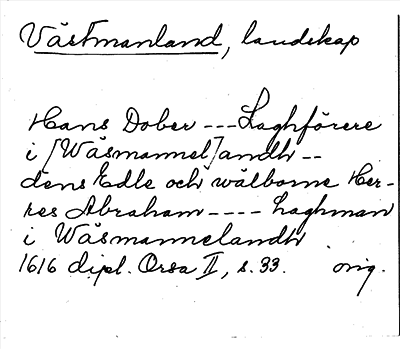 Västmanland, landskap
Hans Dober --- Laghförere
i [Wäsmannel]andh --
dens Edle och wälborne Her-
res Abraham ---- Laghman
i Wäsmannelandh
1616 dipl. Orsa II, s. 33. orig.